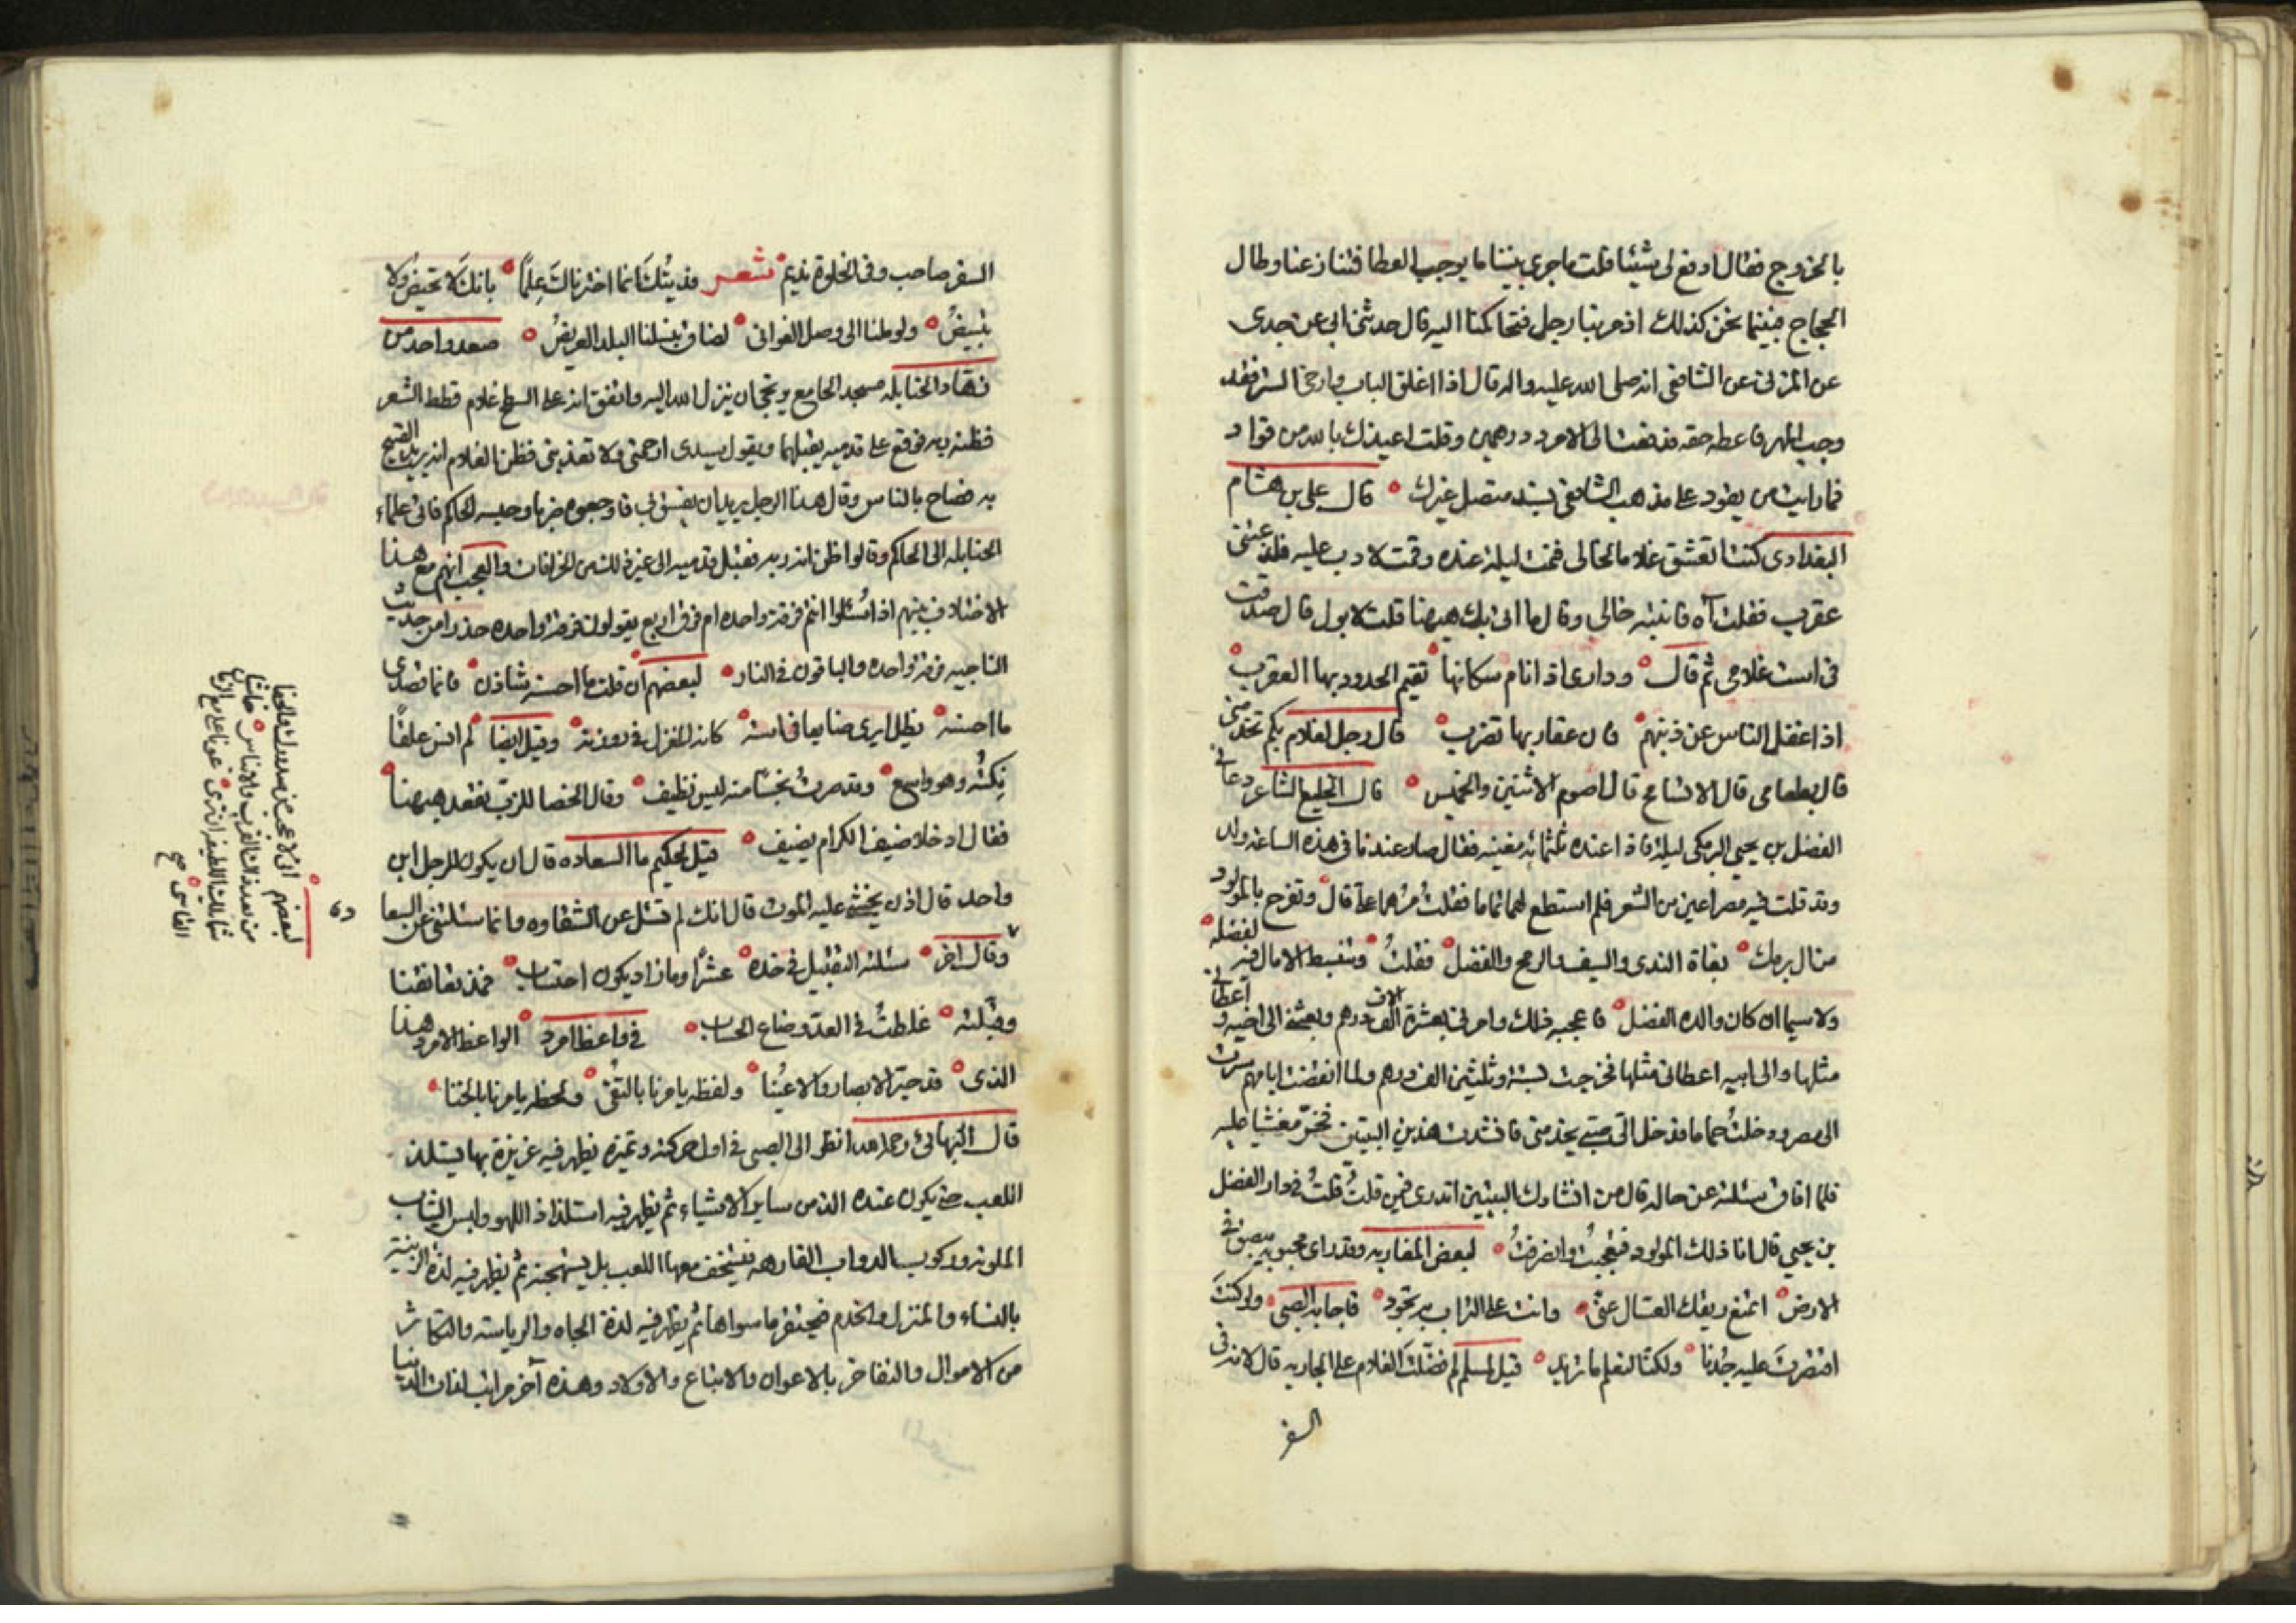 بالخروج فقال ادفع لى شيئا قلت ما جرى بيننا ما يوجب العطا فتنازعنا وطال
الحجاج فبينما نحن كذلك اذ مر بنا رجل فتحاكمنا اليه قال حدثنى ابى عن جدى
عن المزنى عن الشافعى انه صلى الله عليه واله قال اذا اغلق الباب وارخى الستر فقد
وجب المهر فاعطه حقه فدفعت الى الامرد درهمين وقلت اعيذك بالله من قواد
فما رايت من يقود على مذهب الشافعى بسند متصل غيرك قال على بن هشام
البغدادى كنت اتعشق غلاما لخالى فنمت ليلة عنده وقمت لادب عليه فلدغتنى
عقرب فقلت آه فانتبه خالى وقال ما اتى بك ههنا قلت لابول قال صدقت
فى است غلامى ثم قال ودارى اذا نام سكانها تقيم الحدود بها العقرب
اذا غفل الناس عن ذنبهم فان عقاربها تضرب قال رجل لغلام بكم تخدمنى
قال بطعامى قال لا اتسامح قال اصوم الاثنين والخميس قال الخليع الشاعر دعانى
الفضل بن يحيى البرمكى ليلة فاذا عنده ثلثمائه مغنيه فقال صار عندنا فى هذه الساعة ولد
وقد قلت فيه مصراعين من الشعر فلم استطع لهما تماما فقلت مرهما على قال ونفرح بالمولود
من ال برمك بغاة الندى والسيف والرمح والفضل فقلت وتنبسط الامال فيه لفضله
ولا سيما ان كان والده الفضل فاعجبه ذلك وامر لى بعشرة الاف درهم وبعثنى الى اخيه واعطانى
مثلها والى ابيه اعطانى مثلها فخرجت بستة وثلثين الف درهم ولما انقضت ايامهم سرت
الى مصر ودخلت حماما فدخل الى صبى يخدمنى فانشدت هذين البيتين فخر مغشيا عليه
فلما افاق سئلته عن حاله قال من انشادك البيتين اتدرى فيمن قلت قلت فى دار الفضل
بن يحيى قال انا ذلك المولود فتعجبت وانصرفت لبعض المغاربه وقد راى محبوبه يبصق فى
الارض اتمنع ريقك العسال عنى وانت على التراب به تجود فاجابه الصبى ولو كنت
افتقرت عليه جدنا ولكنا لنعلم ما تريد قيل لمسلم لم فضلت الغلام على الجاريه قال لانه فى
السفر
السفر صاحب وفى الخلوة نديم شعر فديتك انما اخترناك علما بانك لا تحيض ولا
تبيض ولو ملنا الى وصل الغوانى لضاق بنسلنا البلد العريض صعد واحد من
زهاد الحنابله مسجد الجامع يرتجى ان ينزل الله اليه واتفق انه على السطح غلام قطط الشعر
فظنه ربه فوقع على قدميه يقبلهما ويقول سيدى ارحمنى ولا تعذبنى فظن الغلام انه يريد القبيح
به فصاح بالناس وقال هذا الرجل يريد ان يفسق بى فاوجعوه ضربا وحبسه الحاكم فاتى علماء
الحنابله الى الحاكم وقالوا ظن انه ربه فقبل قدميه الى غير ذلك من الخرافات والعجب انهم مع هذا
الاختلاف بينهم اذا سئلوا انتم فرقة واحده ام فرق اربع يقولون فرقة واحده حذرا من حديث
الناجيه فرقة واحده والباقون فى النار لبعضهم ان قلت ما احسنه شاذن فانما قصدى
ما احسنه يظل ايرى ضايعا فى استه كانه المغزل فى روزنه وقيل ايضا لم انس علقا
نكته وهو واسع وقد صرت نجسا منه ليس نظيف وقال الخصا للزب نقعد ههنا
فقال ادخلا ضيف الكرام يضيف قيل لحكيم ما السعاده قال ان يكون للرجل ابن
واحد قال اذن يخشى عليه الموت قال انك لم تسئل عن الشقاوه وانما سئلتنى عن السعا
دة
وقال اخر سئلته التقبيل فى خده عشرا وما زاد يكون احتساب فمذ تعانقنا
وقبلته غلطت فى العد وضاع الحساب فى واعظ امرد الواعظ الامرد هذا
الذى قد حير الابصار والاعينا ولفظه يامرنا بالتقى ولحظه يامرنا بالخنا
قال البهائى رحمه الله انظر الى الصبى فى اول حركته وتميزه يظهر فيه غريزة بها يستلذ
اللعب حتى يكون عنده الذ من ساير الاشياء ثم يظهر فيه استلذاذ اللهو ولبس الثياب
الملونه وركوب الدواب الفارهه فيستخف معها اللعب بل يستهجنه ثم يظهر فيه لذة الزينة
بالنساء والمنزل والخدم فيحتقر ما سواها ثم يظهر فيه لذة الجاه والرياسة والتكاثر
من الاموال والتفاخر بالاعوان والاتباع والاولاد وهذه آخر مراتب لذات الدنيا
لبعضهم